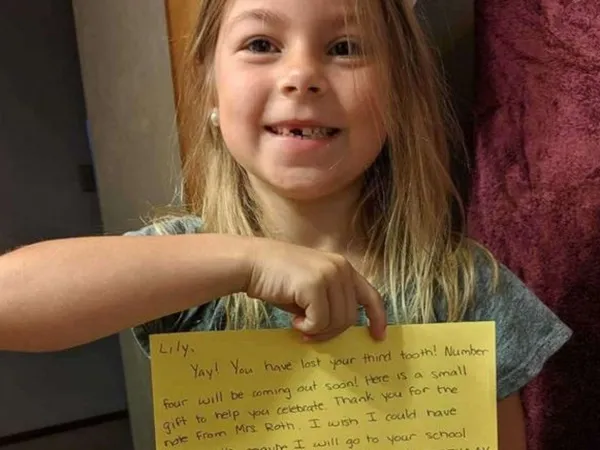 Lily,
Yay! You have lost your third tooth! Number
four will be coming out soon! Here is a small
gift to help you celebrate. Thank you for the
note from Mrs. Roth. I wish I could have
I will go to your school